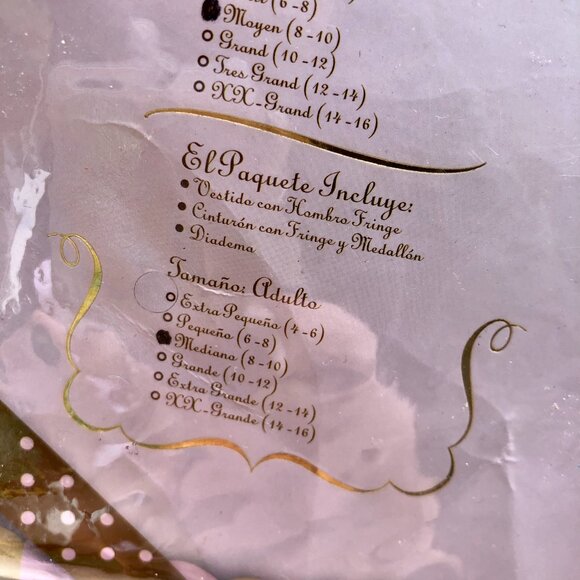 (6-8)
Moyen (8-10)
Grand (10-12)
Tres Grand (12-14)
XX-Grand (14-16)
El Paquete Incluye:
• Vestido con Hombro Fringe
• Cinturón con Fringe y Medallón
• Diadema
Tamaño: Adulto
Extra Pequeño (4-6)
Pequeño (6-8)
Mediano (8-10)
Grande (10-12)
Extra Grande (12-14)
XX-Grande (14-16)